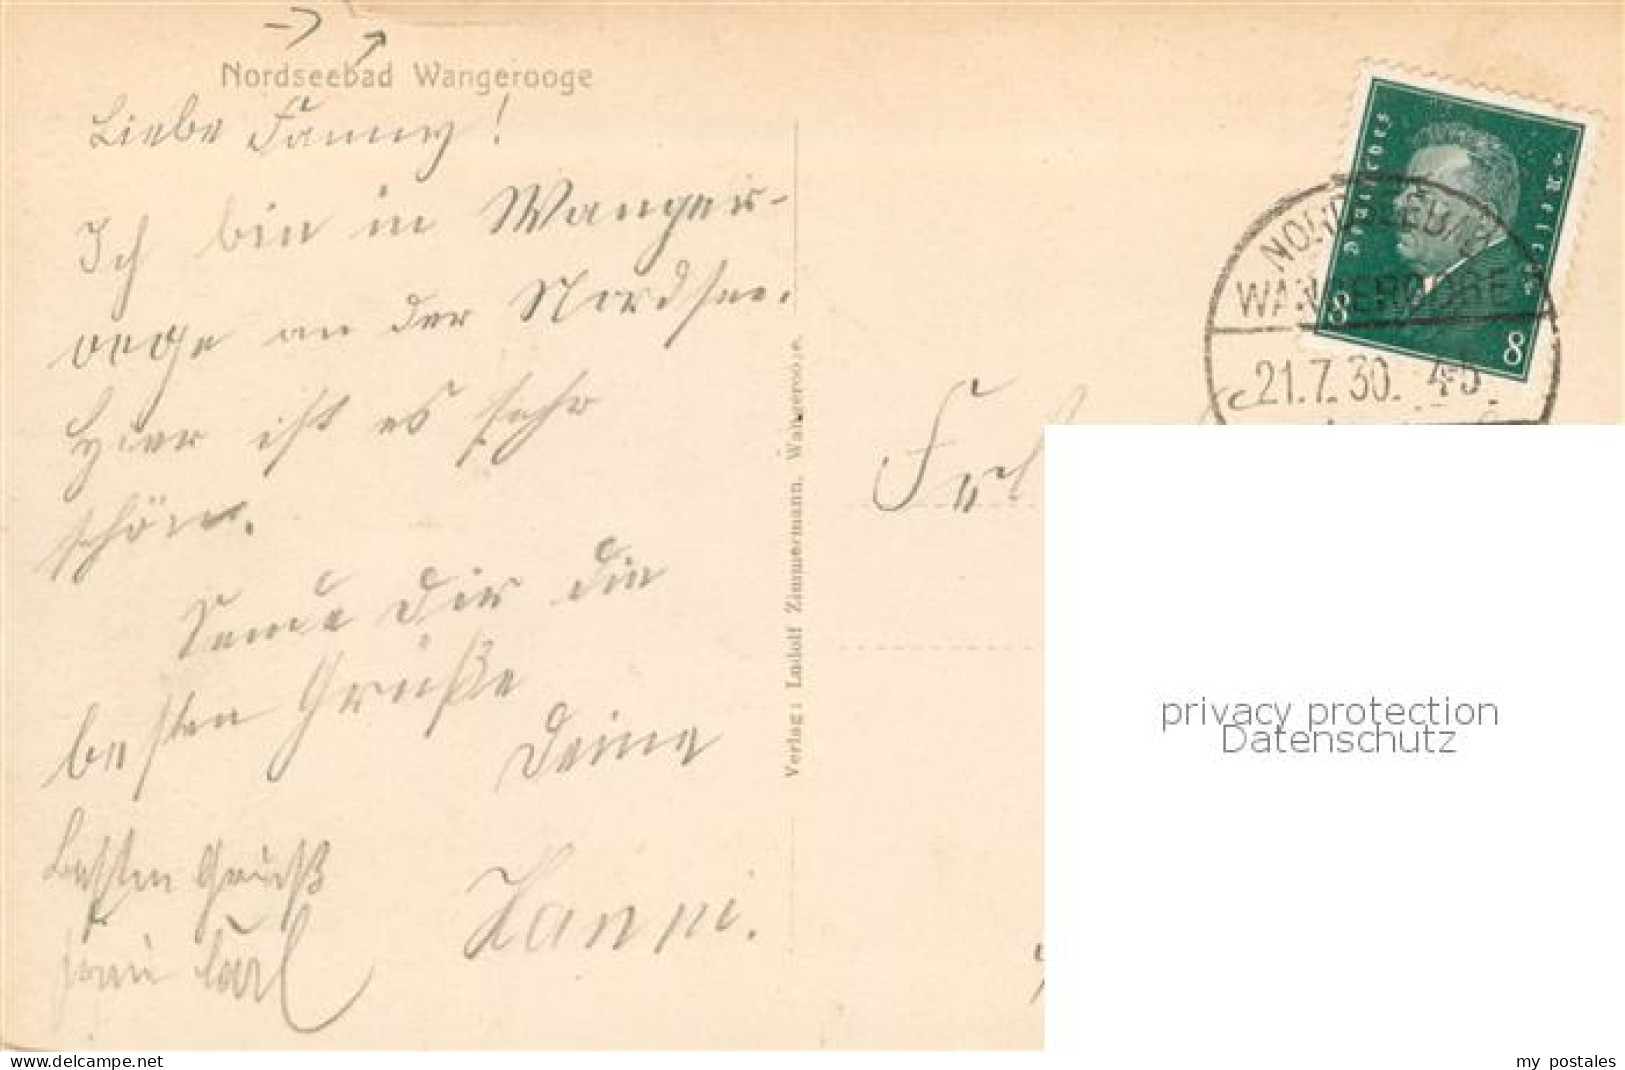 Nordseebad Wangerooge
Liebe Fanny!
Ich bin in Wanger-
ooge an der Nordsee.
Hier ist es sehr
schön.
Sende Dir die
besten Grüße
Deine
Hanni.
Besten Gruß
Carl
Verlag: Ludolf Zimmermann, Wangerooge.
Deutsches Reich
8 8
NORDSEEBAD
WANGEROOGE
21.7.30. 4-5
Frl
privacy protection
Datenschutz
www.delcampe.net
my_postales